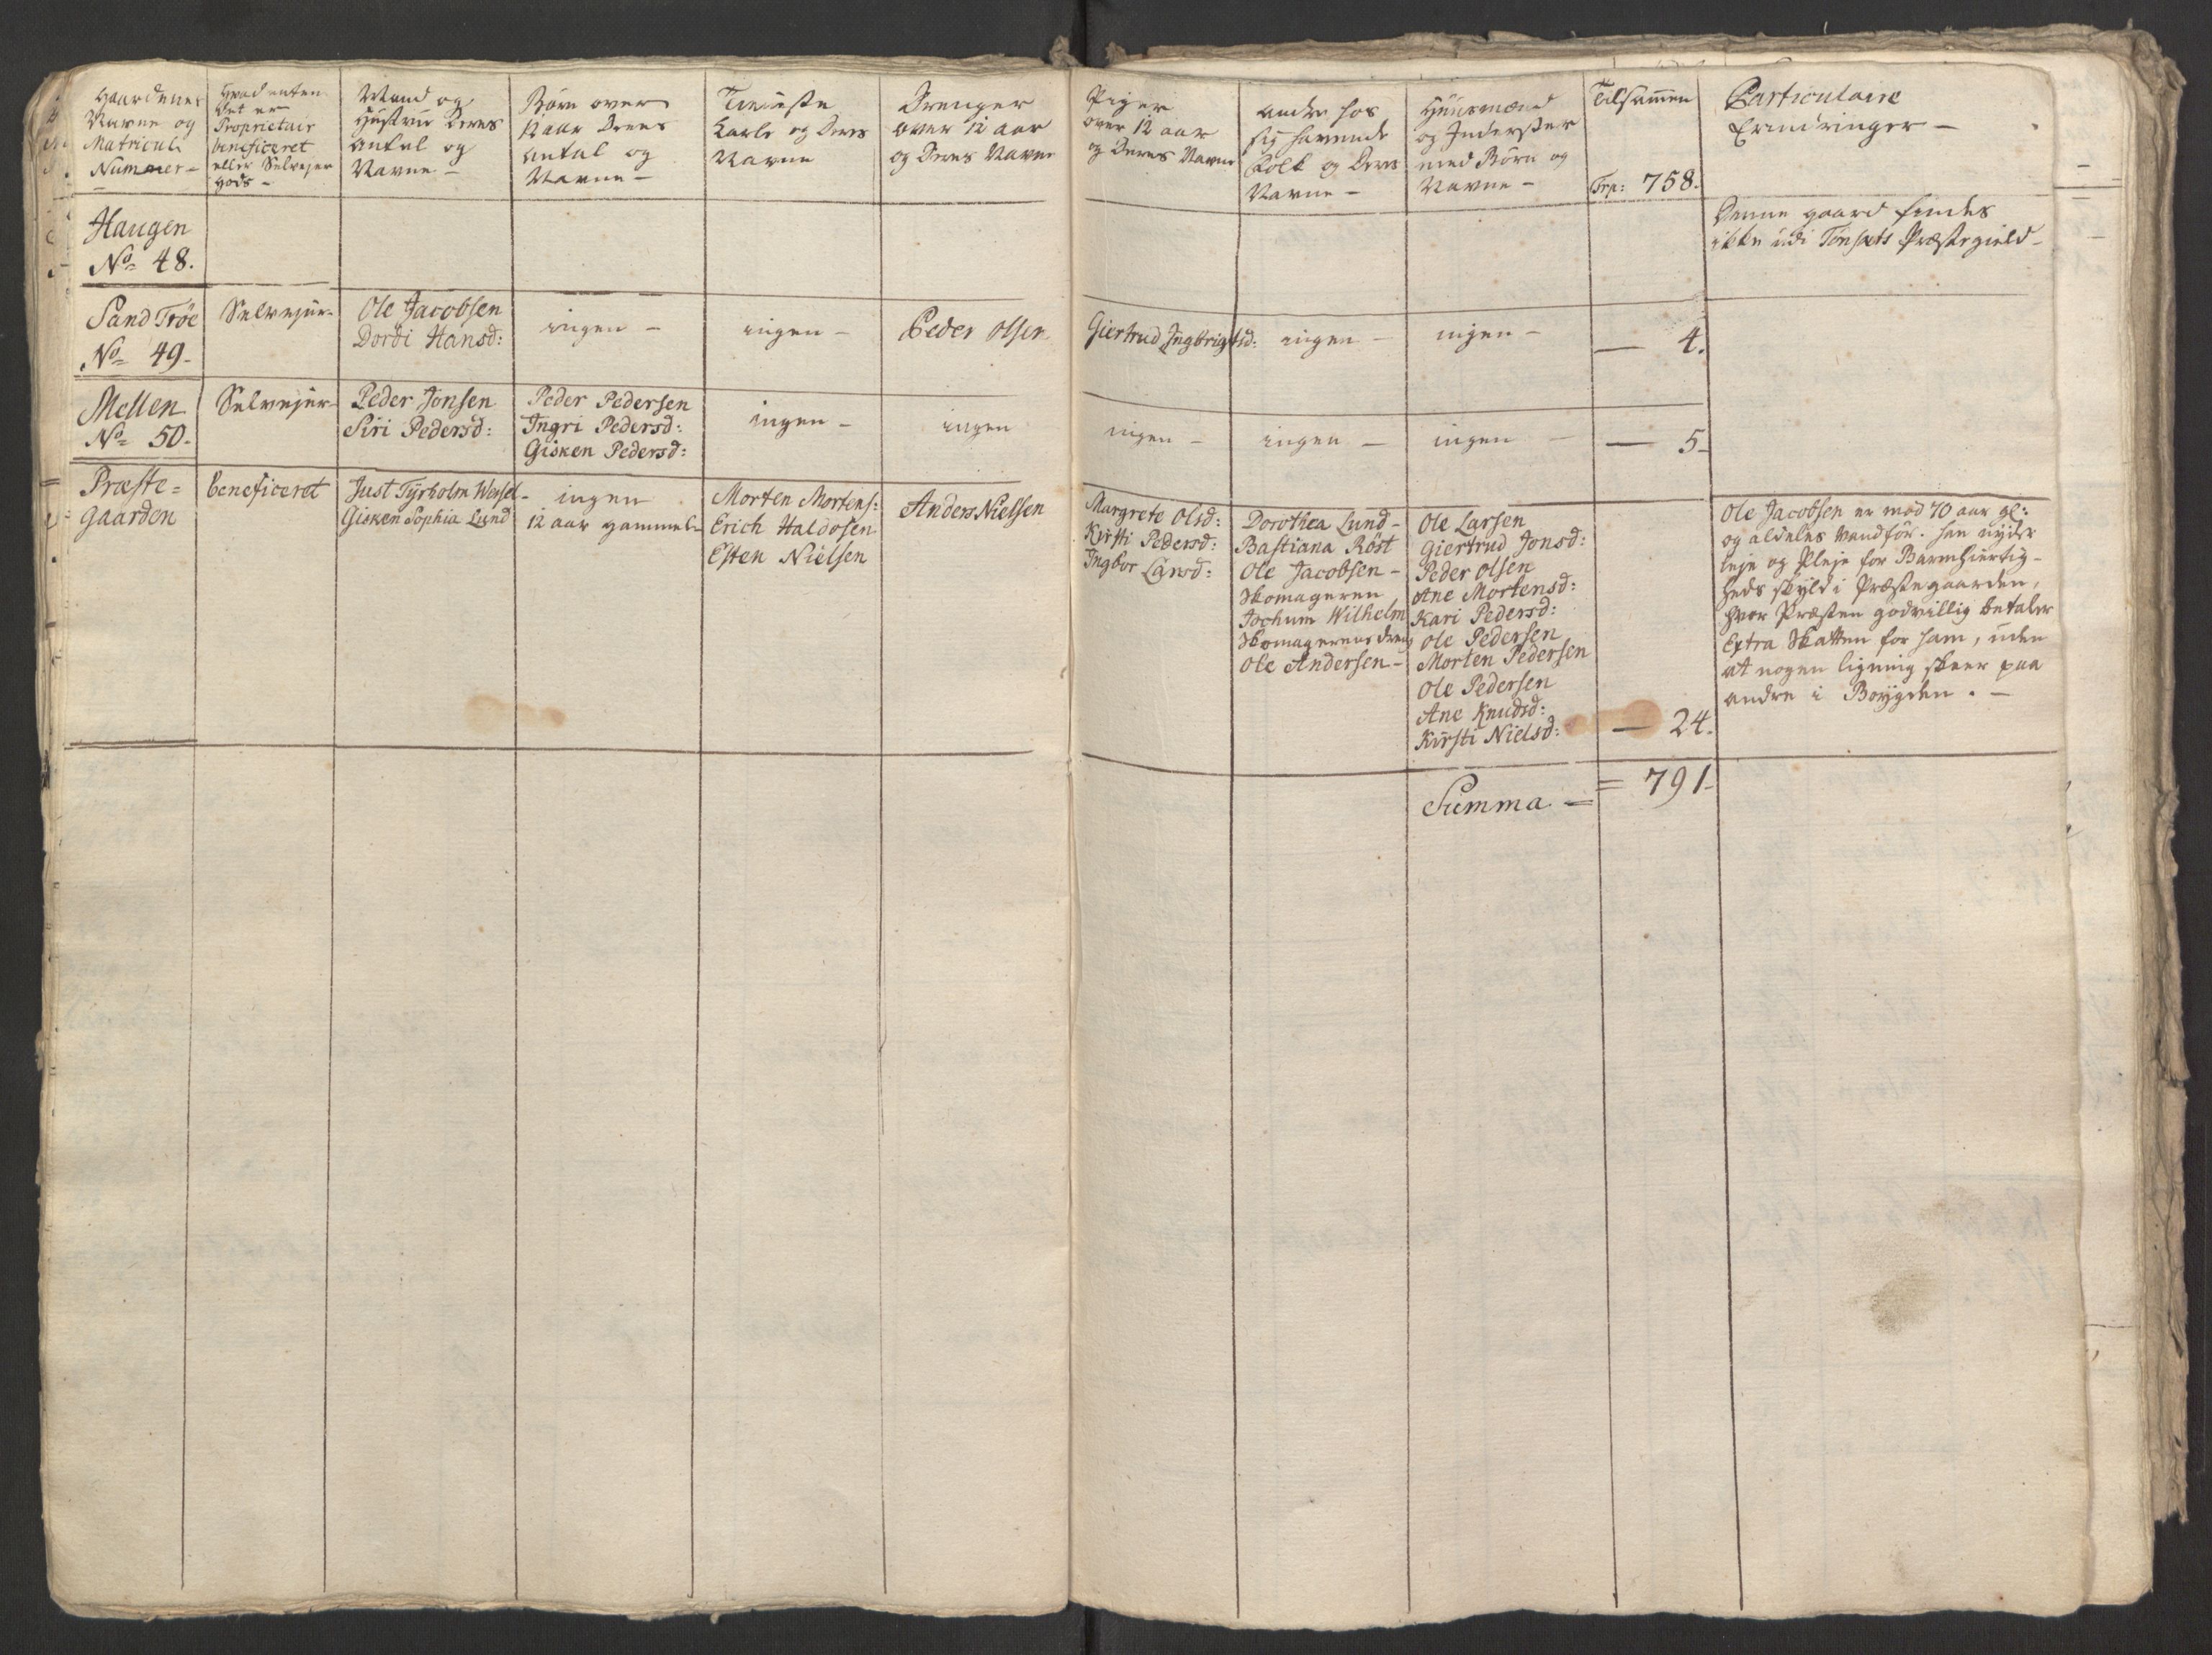 Gaardenes
Navne og
Matriculs
Nummer-
Hvad enten
Det er
Proprietair
beneficeret
eller Selvejer
Gods-
Mand og
Hustrue Deres
Antal og
Navne-
Børn over
12 aar Deres
Antal og
Navne-
Tieniste
Karle og Deres
Navne
Drenger
over 12 aar
og Deres Navne
Piger
over 12 aar
og Deres Navne
Andre hos
sig havende
Folk og Deres
Navne-
Huusmænd
og Inderster
med Børn og
Navne-
Tilsammen
Trp: 758.
Particulaire
Erindringer-
Haugen
No 48.
Denne gaard findes
ikke udi Tønsets Præstegield-
Sand Trøe
No 49-
Selvejer-
Ole Jacobsen
Dordi Hansd:
ingen-
ingen-
Peder Olsen
Giertrud Ingbrigtsd:
ingen-
ingen-
- 4.
Mellen
No 50-
Selvejer-
Peder Jonsen
Siri Pedersd:
Peder Pedersen
Ingri Pedersd:
Gisken Pedersd:
ingen-
ingen
ingen-
ingen-
ingen-
- 5-
Præste=
gaarden
beneficeret
Just Tyrholm Wensel-
Gisken Sophia Lund
ingen
12 aar gammel-
Morten Mortens:
Erich Haldosen
Esten Nielsen
Anders Nielsen
Margrete Olsd:
Kirsti Pedersd:
Ingbor Larsd:
Dorothea Lund-
Bastiana Röst
Ole Jacobsen-
Skomageren
Jochum Wilhelm
Skomagerens dreng
Ole Andersen-
Ole Larsen
Giertrud Jonsd:
Peder Olsen
Ane Mortensd:
Kari Pedersd:
Ole Pedersen
Morten Pedersen
Ole Pedersen
Ane Knudsd:
Kirsti Nielsd:
- 24.
Ole Jacobsen er mod 70 aar gl:
og aldeles vandför. han nyder
leje og Pleje for Barmhiertig-
heds skyld i Præstegaarden,
hvor Præsten godvillig betaler
Extra Skatten for ham, uden
at nogen ligning skeer paa
andre i Boygden.-
Summa = = 791-